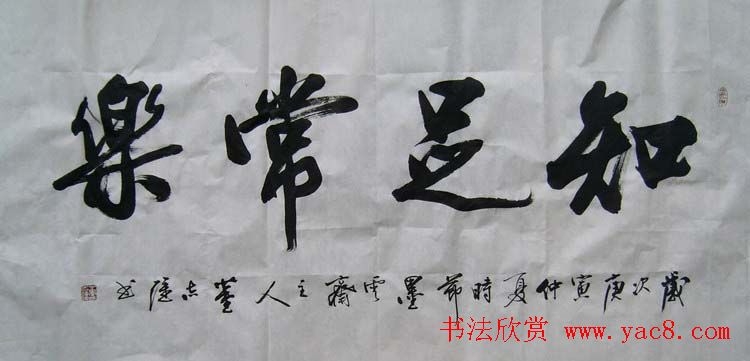 知足常樂
歲次庚寅仲夏時節墨雲齋主人董志隆书
书法欣赏 www.yac8.com